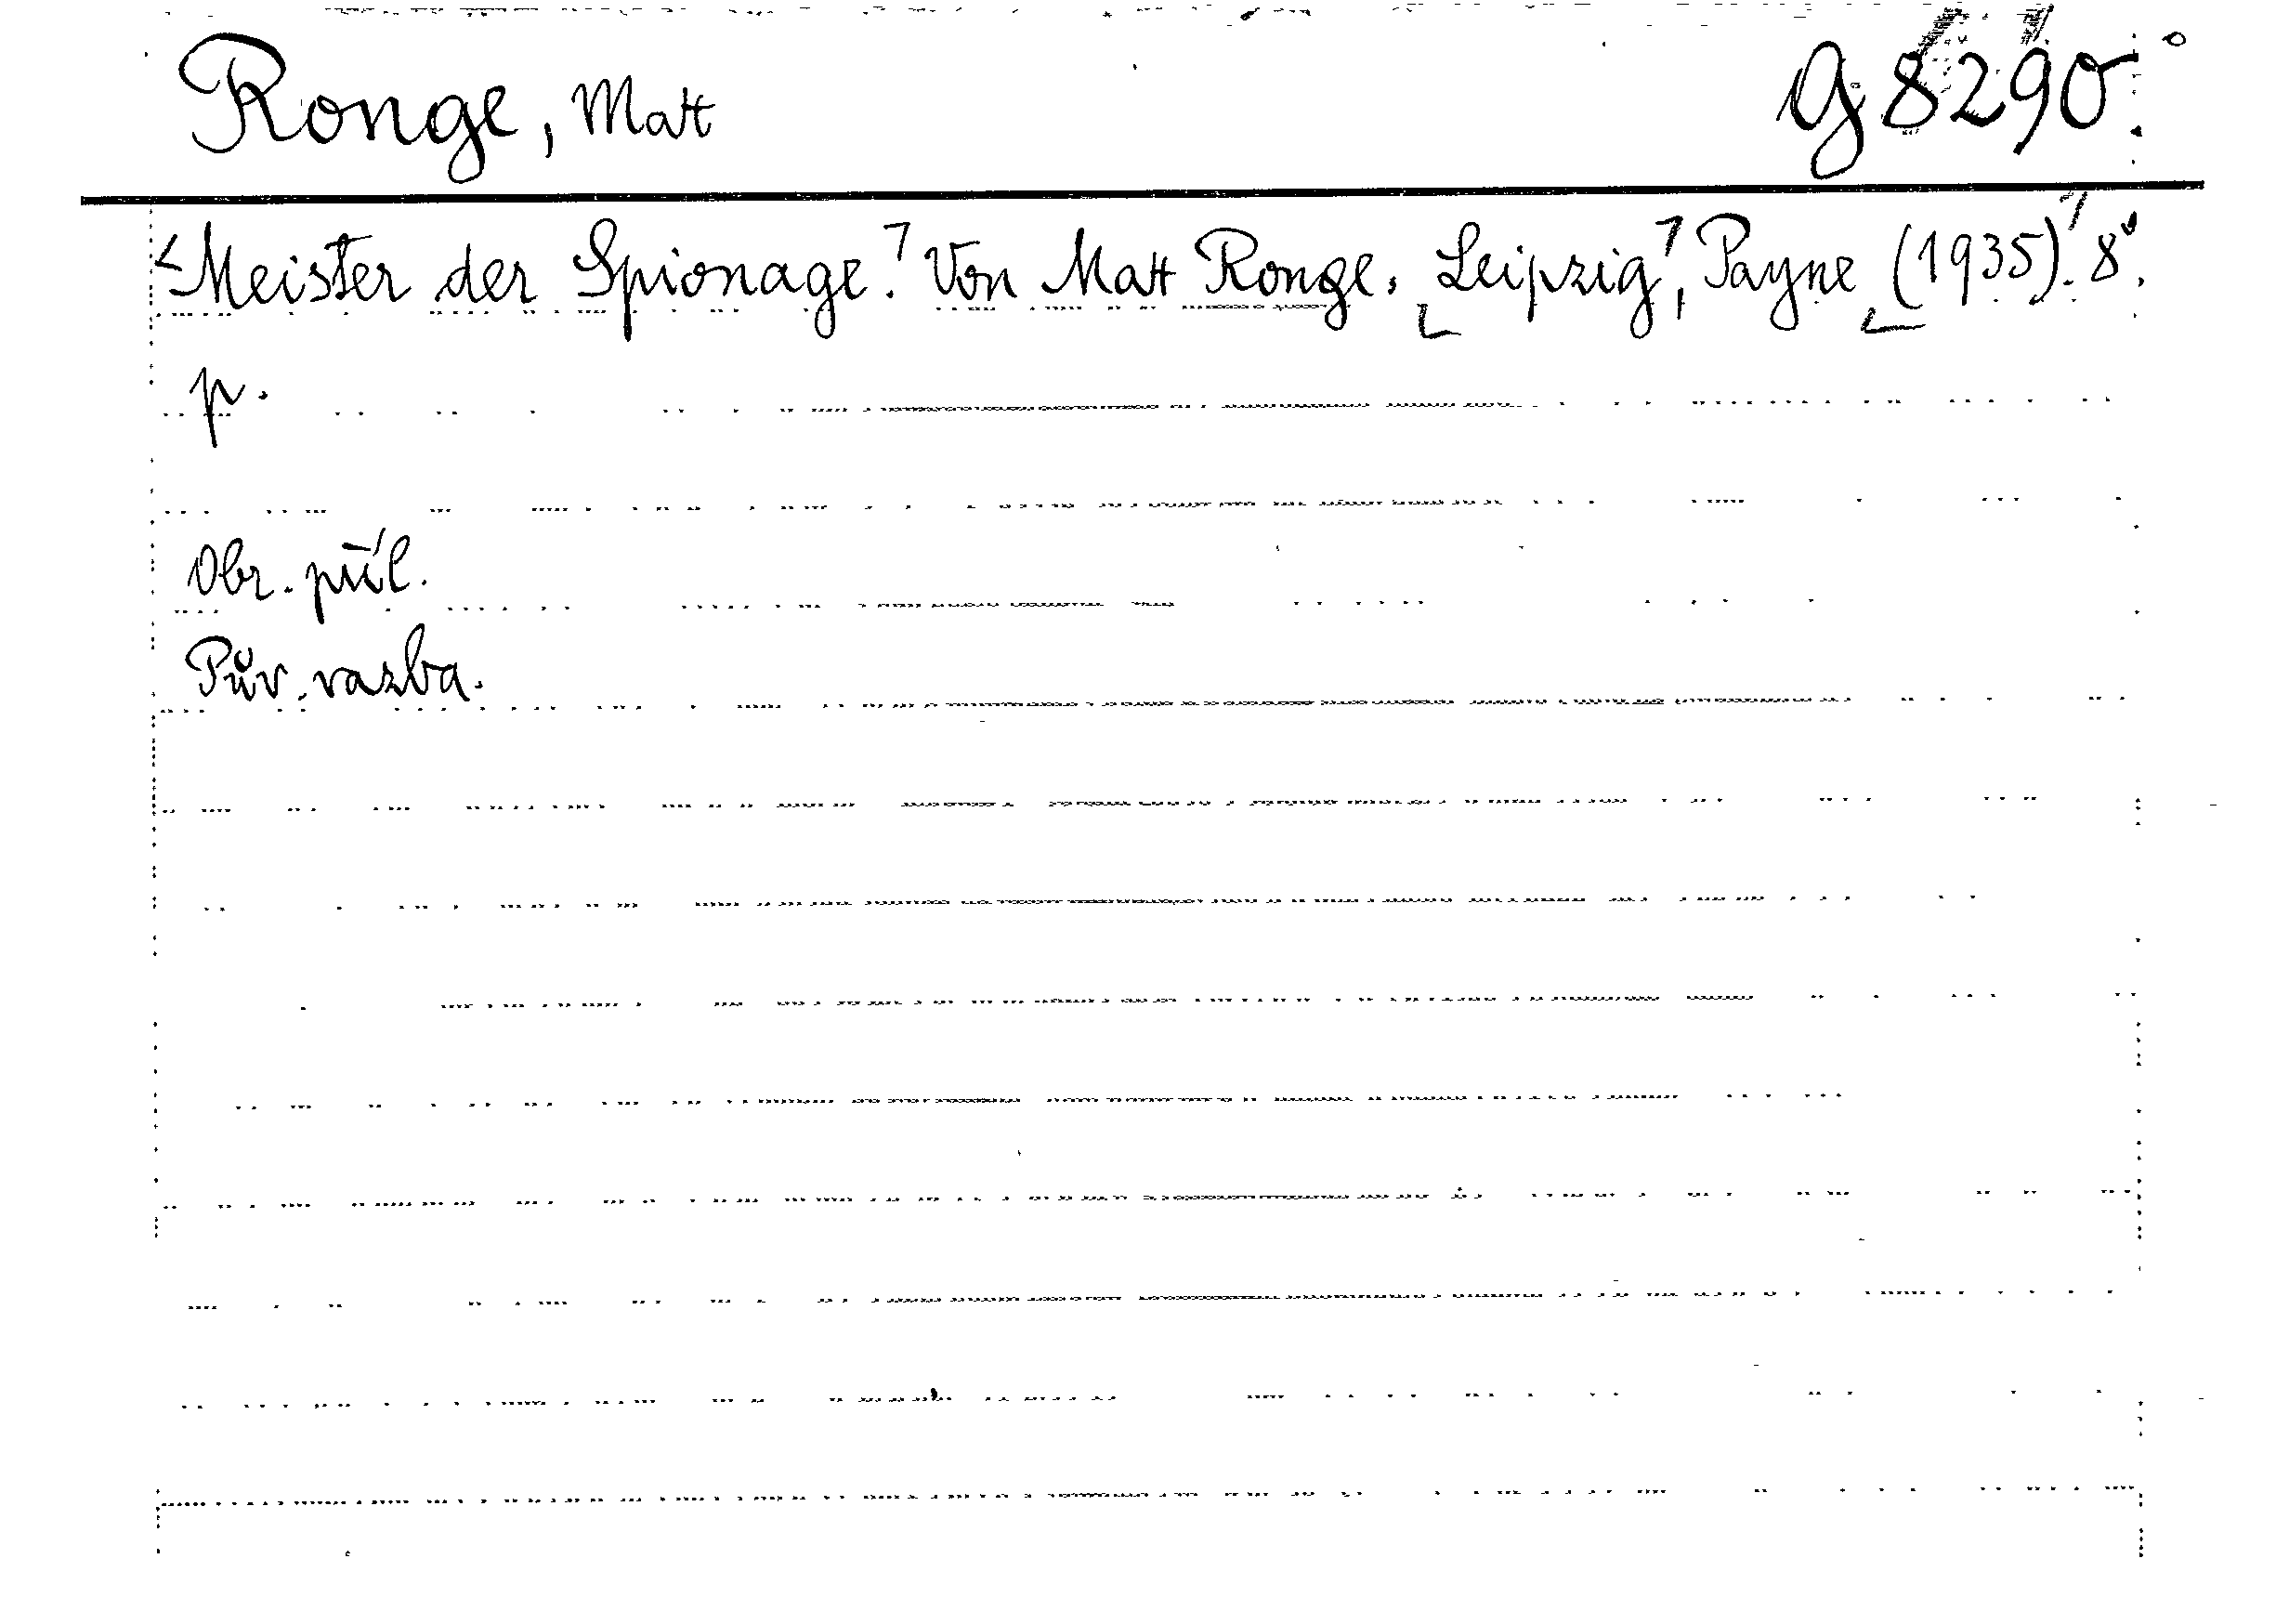 Ronge, Matt
G 8290
Meister der Spionage. Von Matt Ronge. Leipzig, Payne (1935). 8°.
p.
Obr. příl.
Pův. vazba.